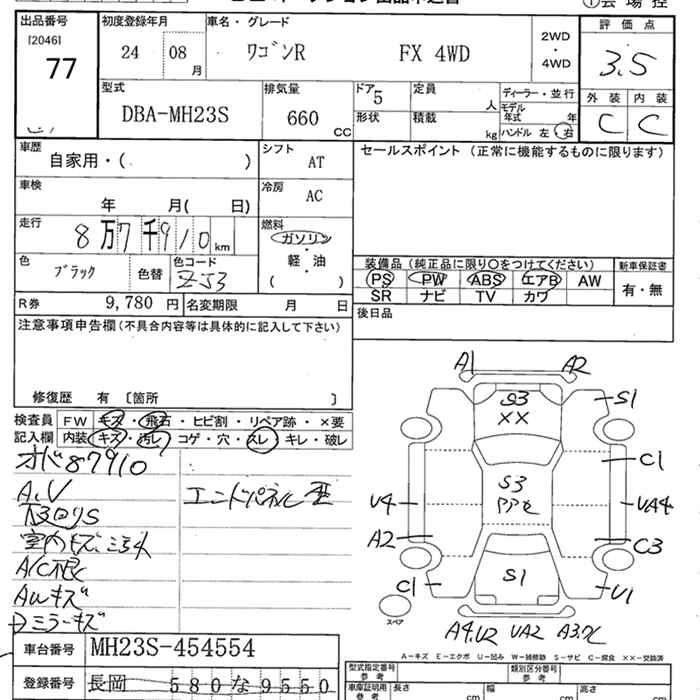 出品番号 初度登録年月 車名・グレード 2WD・4WD 評価点
[2046]
77 24 08月 ワゴンR FX 4WD 3.5
型式 DBA-MH23S 排気量 660 CC ドア 5 定員 人 ディーラー・並行
形状 積載 kg モデル年式 年 ハンドル 左・右
外装 内装
C C
車歴 自家用・( ) シフト AT セールスポイント (正常に機能するものに限ります)
車検 年 月( 日) 冷房 AC
走行 8万7千910km 燃料 ガソリン・軽・油 ( )
色 ブラック 色替 色コード ZJ3
装備品 (純正品に限り○をつけてください) 新車保証書
PS PW ABS エアB AW 有・無
SR ナビ TV カワ
R券 9,780 円 名変期限 月 日 後日品
注意事項申告欄(不具合内容等は具体的に記入して下さい)
修復歴 有 〔箇所 〕
検査員 FW キズ・飛石・ヒビ割・リペア跡・×要
記入欄 内装 キズ・汚レ・コゲ・穴・スレ・キレ・破レ
オド87910
A.V
下回りS
室内キズ
A/C根
AWキズ
ミラーキズ
エンドパネル歪
A1 A2
S3
XX
S1
C1
S3
U4 UA4
A2 C3
S1
C1 U1
スペア
A4.U2 UA2
A-キズ E-エクボ U-凹み W-補修跡 S-サビ C-腐食 ××-交換済
車台番号 MH23S-454554
登録番号 長岡 580な9550
型式指定番号 参考 類別区分番号 参考
車庫証明用 参考 長さ cm 幅 cm 高さ cm